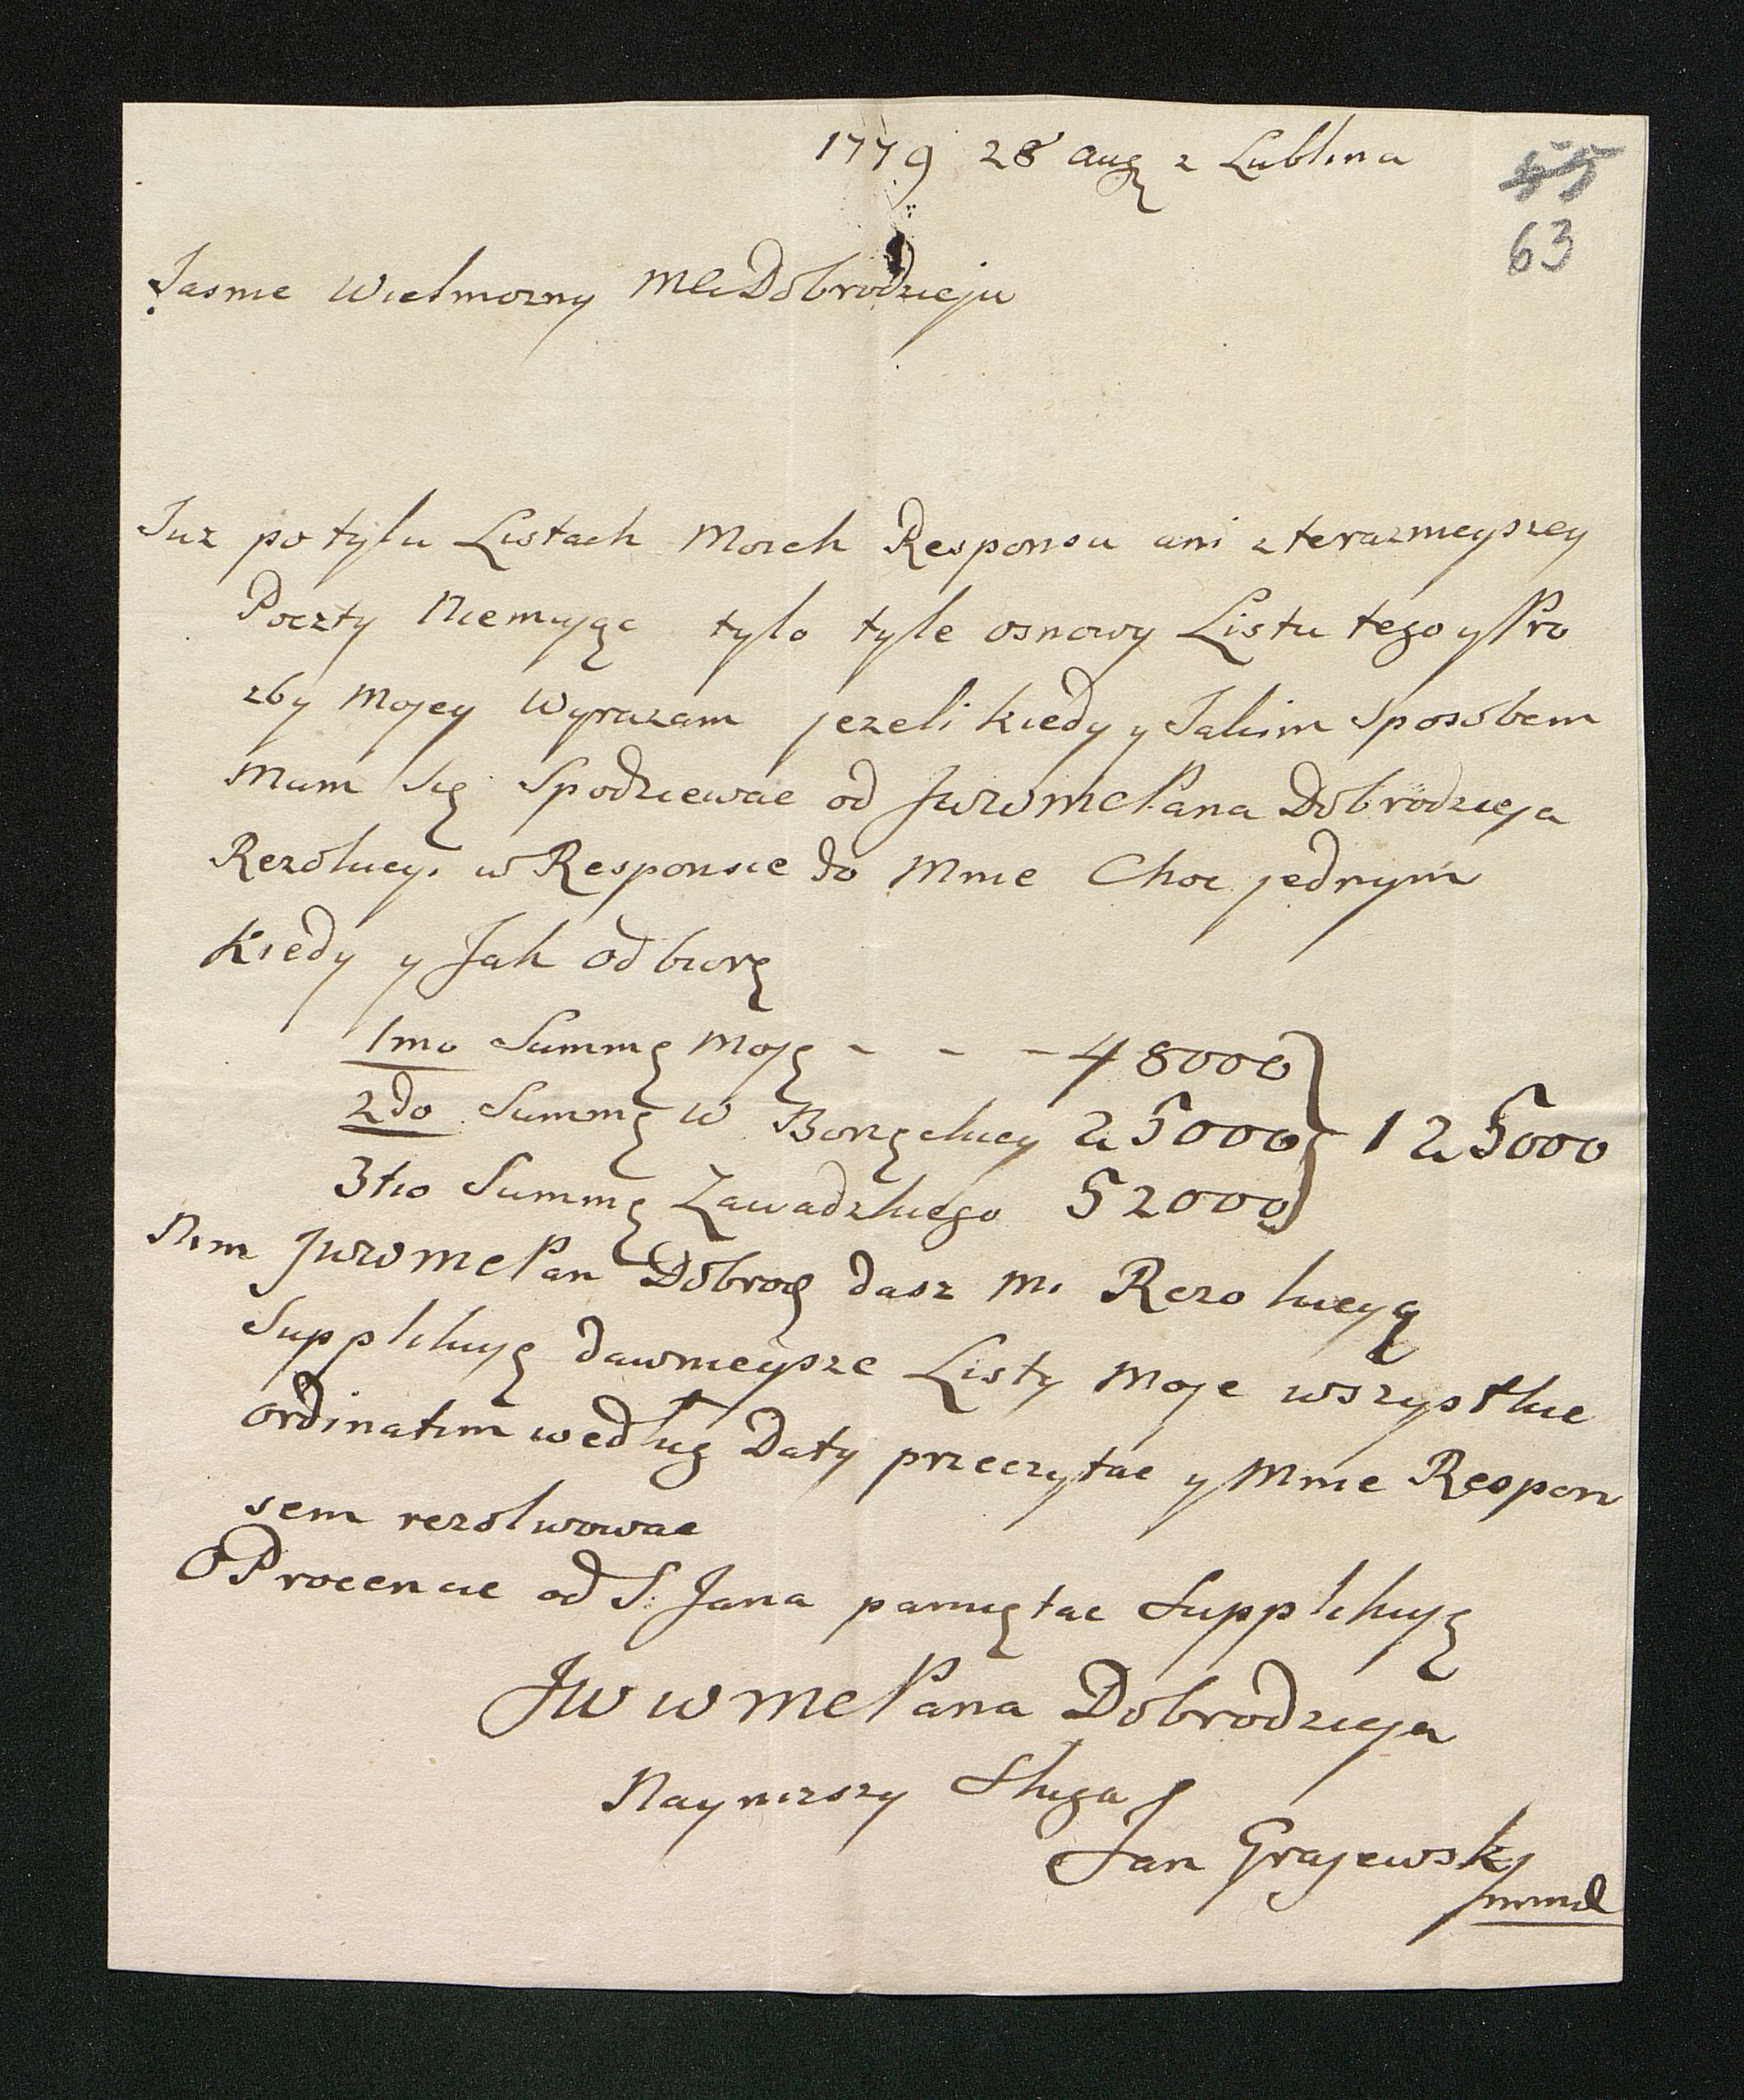 1779 28 Aug z Lublina
55
63
Jasnie Wielmozny MCi Dobrodzieju
Juz po tylu Listach Moich Responsu ani z teraznieyszey
Poczty Niemaiąc tylo tyle osnowy Listu tego y Pro
zby Mojey Wyrazam jezeli kiedy y Jakim sposobem
Mam się Spodziewac od JWWMcPana Dobrodzieja
Rezolucyi w Responsie do Mnie Choc jednym
Kiedy y Jak odbiorę
1mo Summę Moję - - - 48000
2do Summę w 25000 125000
3tio Summę Zawadzkiego 52000
Nim JWWMcPan Dobrodz dasz Mi Rezolucyą
Supplikuję dawnieysze Listy Moje wszystkie
ordinatim według Daty przeczytac y Mnie Respon
sem rezolwowac
O Procencie od S: Jana pamiętac Supplikuję
JWWMcPana Dobrodzieja
Nayniższy Sługa
Jan Grajewski